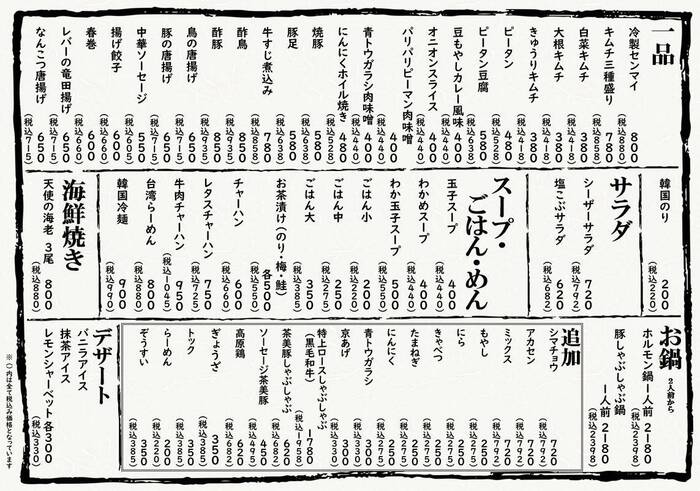 一品
冷製センマイ 800 (税込880)
キムチ三種盛り 780 (税込858)
白菜キムチ 380 (税込418)
大根キムチ 380 (税込418)
きゅうりキムチ 380 (税込418)
ピータン 480 (税込528)
ピータン豆腐 580 (税込638)
豆もやしカレー風味 400 (税込440)
オニオンスライス 400 (税込440)
パリパリピーマン肉味噌 400 (税込440)
青トウガラシ肉味噌 400 (税込440)
にんにくホイル焼き 480 (税込528)
焼豚 580 (税込638)
豚足 580 (税込638)
牛すじ煮込み 780 (税込858)
酢鳥 850 (税込935)
酢豚 850 (税込935)
鳥の唐揚げ 650 (税込715)
豚の唐揚げ 650 (税込715)
中華ソーセージ 550 (税込605)
揚げ餃子 600 (税込660)
春巻 600 (税込660)
レバーの竜田揚げ 650 (税込715)
なんこつ唐揚げ 650 (税込715)
韓国のり 200 (税込220)
サラダ
シーザーサラダ 720 (税込792)
塩こぶサラダ 620 (税込682)
スープ・ごはん・めん
玉子スープ 400 (税込440)
わかめスープ 400 (税込440)
わか玉子スープ 500 (税込550)
ごはん小 200 (税込220)
ごはん中 250 (税込275)
ごはん大 350 (税込385)
お茶漬け(のり・梅・鮭) 各500 (税込550)
チャーハン 600 (税込660)
レタスチャーハン 750 (税込725)
牛肉チャーハン 950 (税込1045)
台湾らーめん 800 (税込880)
韓国冷麺 900 (税込990)
海鮮焼き
天使の海老 3尾 800 (税込880)
お鍋 2人前から
ホルモン鍋 一人前 2180 (税込2398)
豚しゃぶしゃぶ鍋 一人前 2180 (税込2398)
追加
シマチョウ 720 (税込792)
アカセン 720 (税込792)
ミックス 720 (税込792)
もやし 250 (税込275)
にら 250 (税込275)
きゃべつ 250 (税込275)
たまねぎ 250 (税込275)
にんにく 250 (税込275)
青トウガラシ 300 (税込330)
京あげ 300 (税込330)
特上ロースしゃぶしゃぶ (黒毛和牛) 1780 (税込1958)
茶美豚しゃぶしゃぶ 620 (税込682)
ソーセージ茶美豚 450 (税込495)
高原鶏 620 (税込682)
ぎょうざ 350 (税込385)
トック 350 (税込385)
らーめん 200 (税込220)
ぞうすい 350 (税込385)
デザート
バニラアイス
抹茶アイス
レモンシャーベット 各300 (税込330)
※()内は全て税込み価格となっています